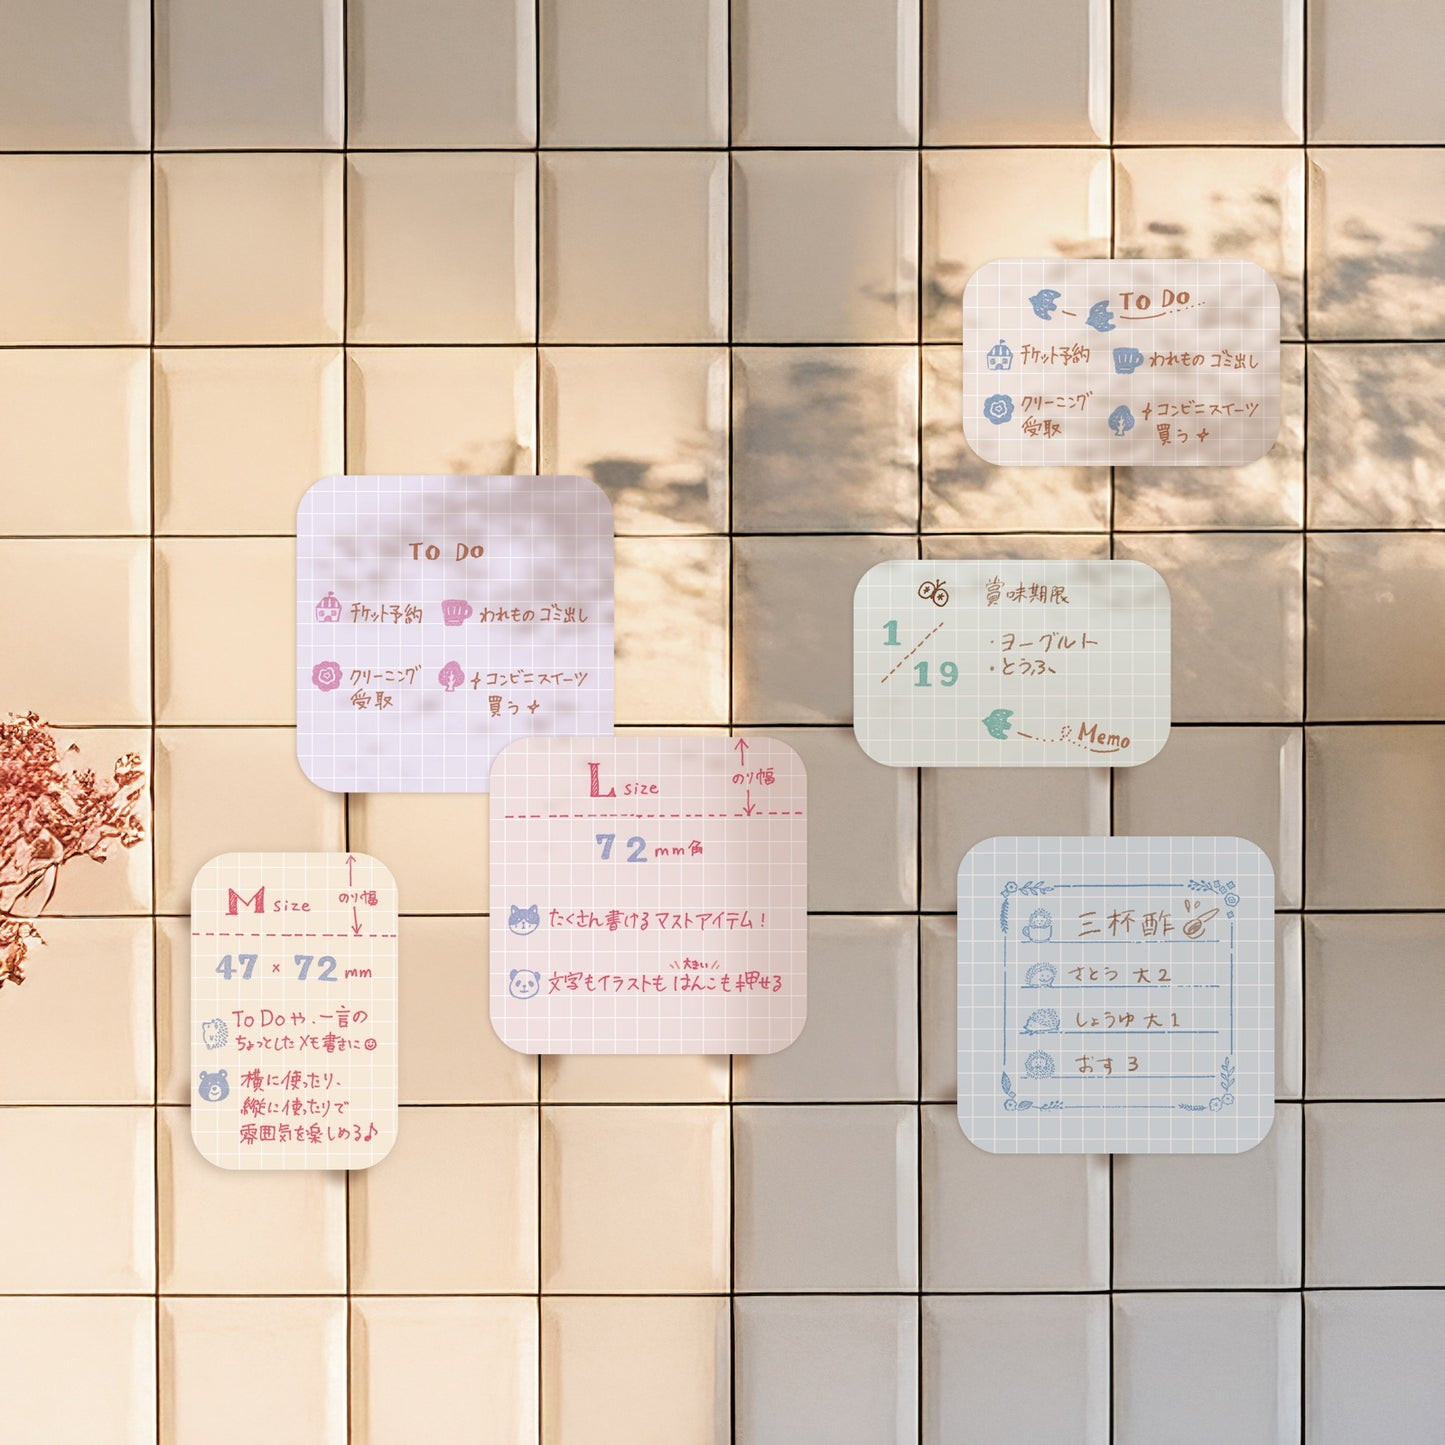 To Do
チケット予約
われもの ゴミ出し
クリーニング
受取
コンビニスイーツ
買う
To Do
チケット予約
われもの ゴミ出し
クリーニング
受取
コンビニスイーツ
買う
賞味期限
1/19
・ヨーグルト
・とうふ
Memo
L size
のり幅
72mm角
たくさん書けるマストアイテム！
\\大きい//
文字もイラストもはんこも押せる
M size
のり幅
47×72mm
To Doや、一言の
ちょっとしたメモ書きに☺
横に使ったり、
縦に使ったりで
雰囲気を楽しめる♪
三杯酢
さとう 大2
しょうゆ 大1
おす 3